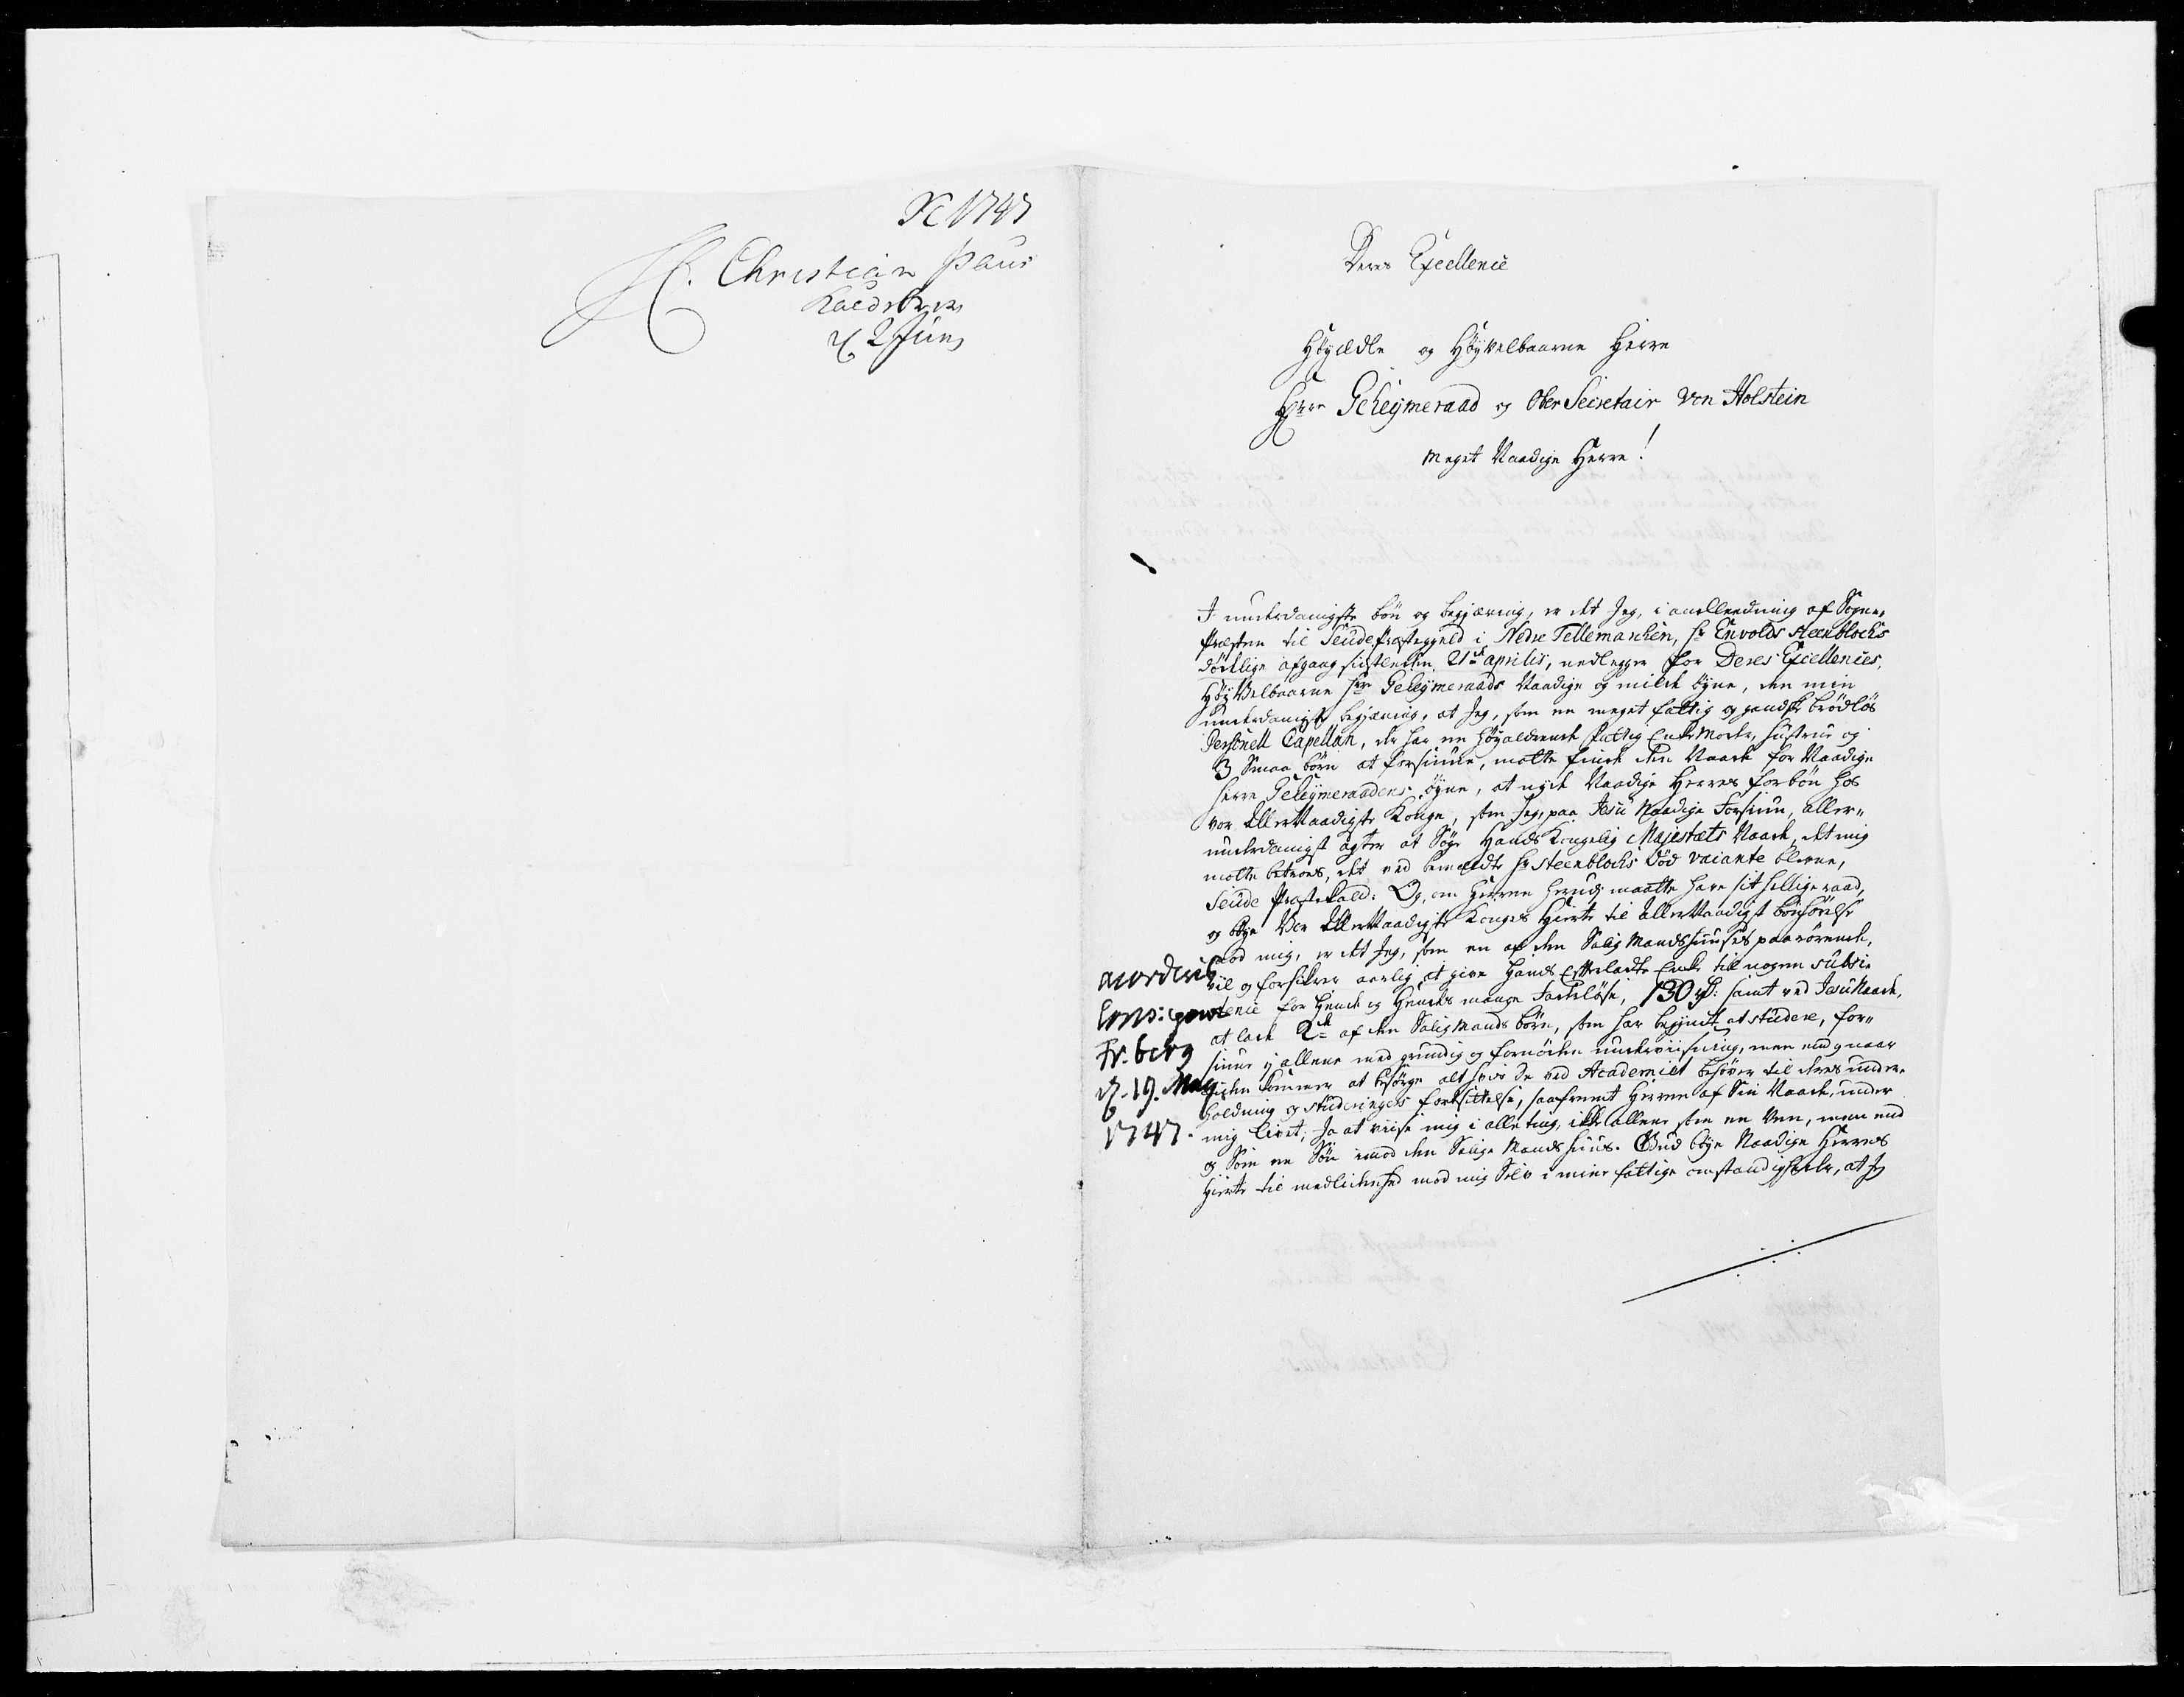 1747
H. Christian Paus
Kaldsbrev
d. 2 Juny
Deres Excellence
Høyædle og Høyvelbaarne Herre
Herr Geheymeraad og Ober Secretair von Holstein
meget Naadige Herre!
I underdanigste bön og begjæring, er det Jeg, i anleedning af Sogne-
Præsten til Seude Præstegield i Nedre Tellemarken, Hr Envolds Steenblochs
dödelige afgang sidstleden 21de aprilis, nedlegger for Deres Excellences,
HøyVelbaarne Herr Geheymeraads Naadige og milde öyne, den min
underdanigste begjæring, at Jeg, som en meget fattig og gandske brödlös
Personell Capellan, der har en høyaldrende fattig Enke Moder, hustrue og
3 Smaa börn at forsiune, motte finde den Naade for Naadige
Herre Geheymeraadens öyne, at nyde Naadige Herres forbön hos
vor AllerNaadigste Konge, som Jeg, paa Jesu Naadige Forsiun, aller-
underdanigst agter at Söge Hands Kongelig Majestæts Naade, det mig
motte betroes, det ved bemeldte Hr Steenblochs Död vacante blevne,
Seude Præstekald: Og, om Herren herudj maatte have sit hellige raad,
og böye Vor AllerNaadigste Konges Hierte til allerNaadigst bönhörelse
mod mig, er det Jeg, som en af den Salig Mands huuses paarørende,
vil og forsikrer ærlig, at give Hands Efterladte Enke til nogen subsi-
stence for Hende og Hendes mange Faderløse, 130 rd: samt ved Jesu Naade,
at lade 2de af den Salig Mands börn, som har begyndt at studere, for-
siune ej allene med grundig og fornöden underviisning, men end og naar
tiden kommer at besörge alt hvis de ved Academiet behöver til deres under-
holdning og studeringers fortsettelse, saafremt Herren af Sin Naade, under
mig livet; Ja at viise mig i alle ting, ikke allene som en Ven, men end
og Som en Sön imod den Salige Mands huus. Gud böye Naadige Herres
Hierte til medlidenhed mod mig Selv i mine fattige omstændigheder, at Jeg
Fr.berg
d. 19. May
1747.